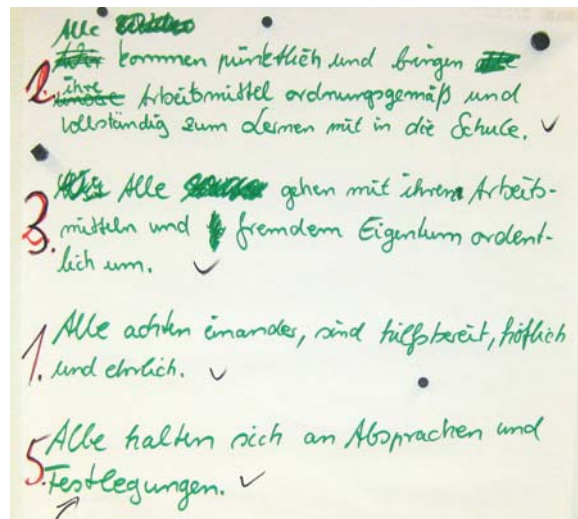 Alle
Wir kommen pünktlich und bringen
2. ihre unsere Arbeitsmittel ordnungsgemäß und
vollständig zum Lernen mit in die Schule. ✓
Alle gehen mit ihren Arbeits-
3. mitteln und fremdem Eigentum ordent-
lich um. ✓
Alle achten einander, sind hilfsbereit, höflich
1. und ehrlich. ✓
5. Alle halten sich an Absprachen und
Festlegungen. ✓